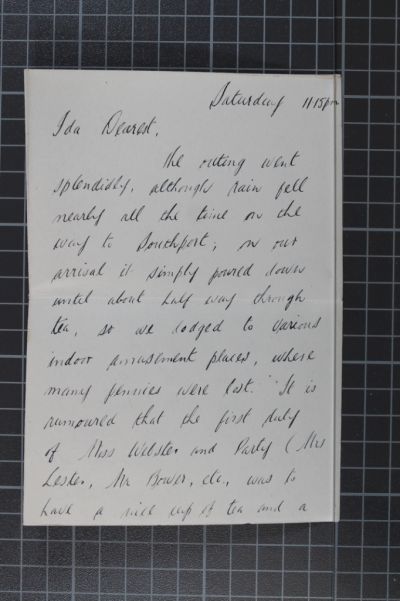 Saturday 11.15pm
Ida Dearest,
The outing went
splendidly, although rain fell
nearly all the time on the
way to Southport; on our
arrival it simply poured down
until about half way through
tea, so we dodged to various
indoor amusement places, where
many pennies were lost. It is
rumoured that the first duty
of Miss Webster and Party (Mrs
Lester, Mr Bower, etc, was to
have a nice cup of tea and a